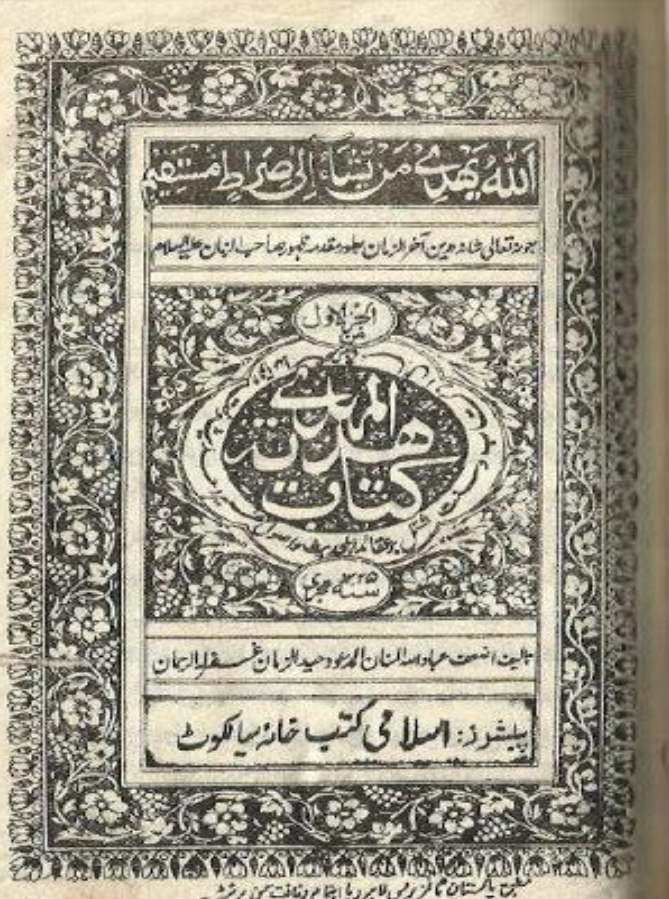 اَللّٰهُ يَهْدِيْ مَنْ يَّشَآءُ اِلٰى صِرَاطٍ مُّسْتَقِيْمٍ
بعونہ تعالیٰ شانہ در این آخر الزمان بطور مقدمہ ظہور صاحب الزمان علیہ السلام
الجزء الاول
من
کتاب
هدية
المهدي
مشتمل بر عقائد
۱۳۲۵
سنہ ہجری
تالیف اضعف عباد اللہ المنان المدعو وحید الزمان غفر لہ الرحمان
پبلشرز: اسلامی کتب خانہ سیالکوٹ
پاکستان ٹائمز پریس لاہور